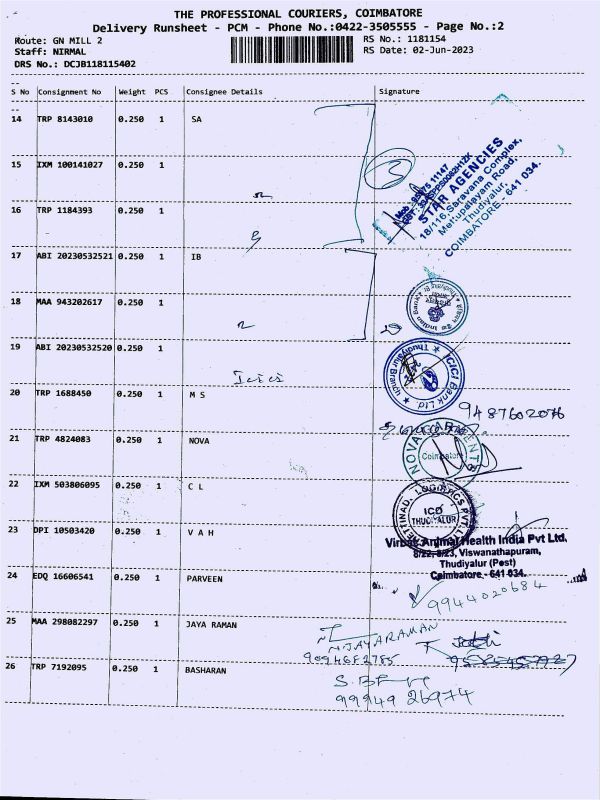 THE PROFESSIONAL COURIERS, COIMBATORE
Delivery Runsheet - PCM - Phone No.:0422-3505555 - Page No.:2
Route: GN MILL 2
RS No.: 1181154
Staff: NIRMAL
RS Date: 02-Jun-2023
DRS No.: DCJB118115402
S No Consignment No Weight PCS Consignee Details Signature
14 TRP 8143010 0.250 1 SA
15 IXM 100141027 0.250 1
STAR AGENCIES
18/116, Saravana Complex,
Mettupalayam Road,
Thudiyalur,
COIMBATORE - 641 034.
16 TRP 1184393 0.250 1
17 ABI 20230532521 0.250 1 IB
18 MAA 943202617 0.250 1
Indian Bank
19 ABI 20230532520 0.250 1
Icici
ICICI Bank Ltd.
Thudiyalur Branch
20 TRP 1688450 0.250 1 M S
9487602076
21 TRP 4824083 0.250 1 NOVA
NOVA
Coimbatore
22 IXM 503806095 0.250 1 C L
LOGISTICS PVT.
ICD
THUDIYALUR
23 DPI 10503420 0.250 1 V A H
Virbac Animal Health India Pvt Ltd.
8/22, 8/23, Viswanathapuram,
Thudiyalur (Post)
Coimbatore - 641 034.
24 EDQ 16606541 0.250 1 PARVEEN
9944020684
25 MAA 298082297 0.250 1 JAYA RAMAN
N.JAYARAMAN
9094682785
26 TRP 7192095 0.250 1 BASHARAN
99949 26974